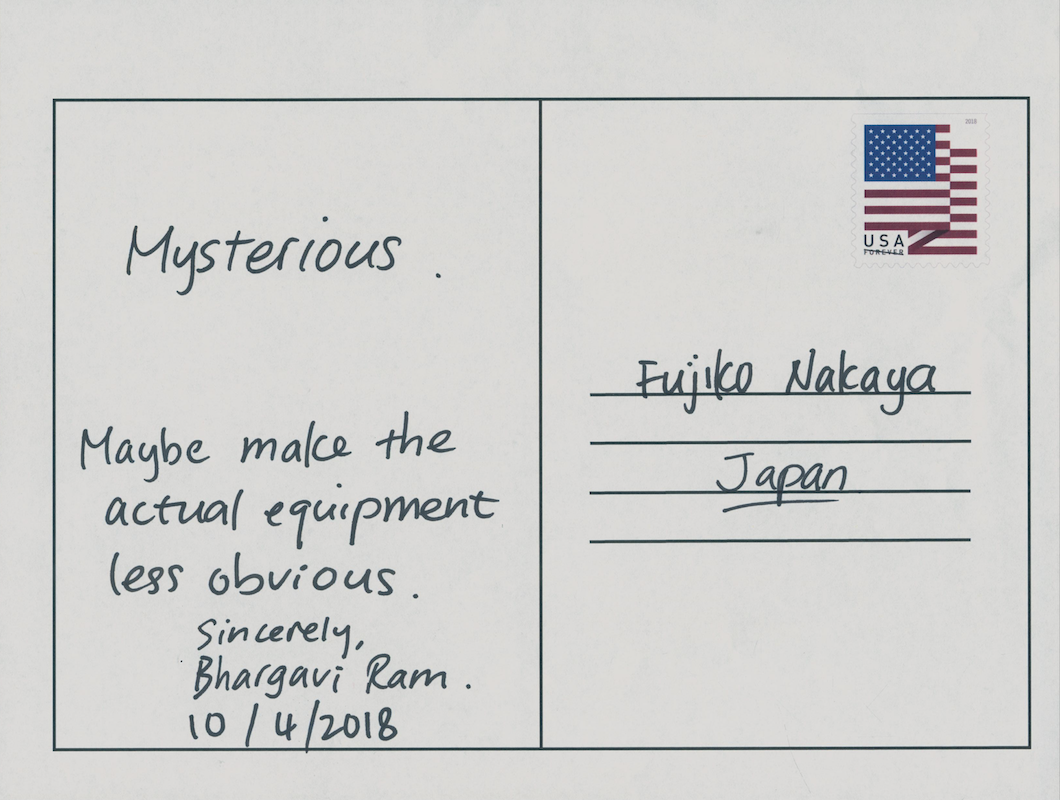 Mysterious.
Maybe make the
actual equipment
less obvious.
Sincerely,
Bhargavi Ram.
10/4/2018
2018
USA
FOREVER
Fujiko Nakaya
Japan